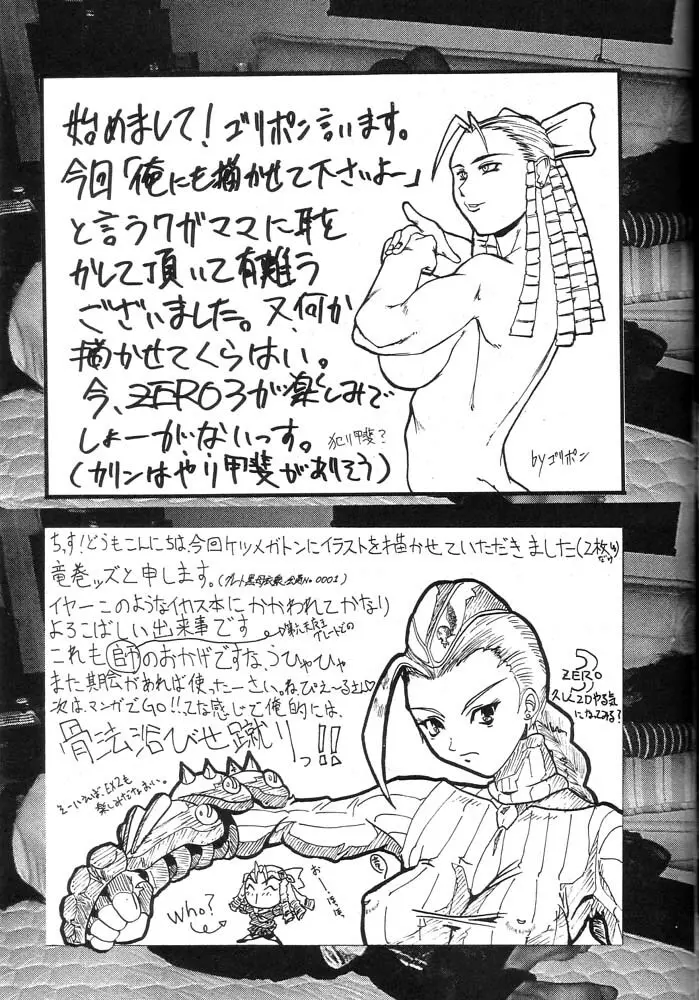 始めまして！ゴリポン言います。
今回「俺にも描かせて下さいよー」
と言うワガママに耳を
かして頂いて有難う
ございました。又、何か
描かせてくらはい。
今、ZERO3が楽しみで
しょーがないっす。
(カリンはやり甲斐がありそう)
犯り甲斐？
byゴリポン
ちっす！どうもこんにちは、今回ケツメガトンにイラストを描かせていただきました(2枚
だけ
竜巻ッズと申します。
イヤーこのようなイカス本にかかわれてかなり
よろこばしい出来事です
これも師のおかげですなうひゃひゃ
また期会があれば使ったーさい。ねぴえ～るさん♡
次は、マンガでGO!!てな感じで俺的には、
骨法浴びせ蹴りっ!!
そーいえば、EX2も
楽しみだなおい。
ZERO3
久しく2Dやる気
になってみる？
Who?
おーっほほほ
竜